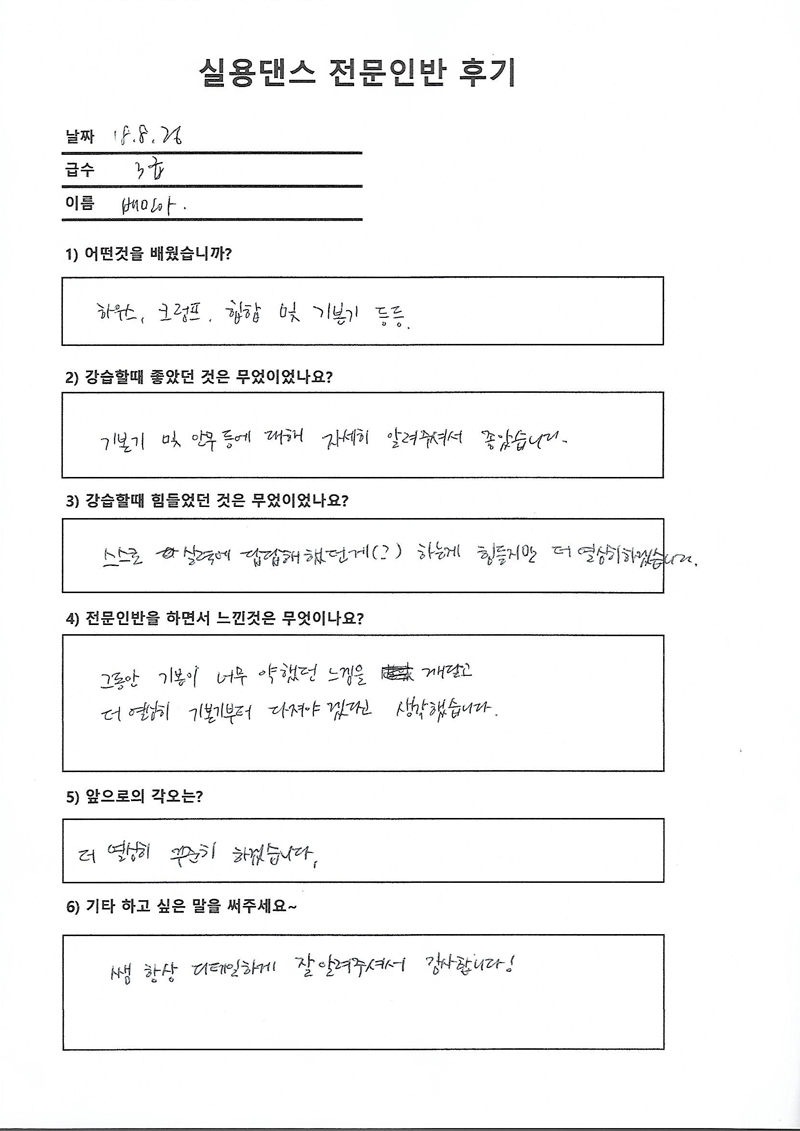 실용댄스 전문인반 후기
날짜 18.8.26
급수 3급
이름 배민아.
1) 어떤것을 배웠습니까?
하우스, 크럼프, 힙합 및 기본기 등등.
2) 강습할때 좋았던 것은 무엇이었나요?
기본기 및 안무 등에 대해 자세히 알려주셔서 좋았습니다.
3) 강습할때 힘들었던 것은 무엇이었나요?
스스로 실력에 답답해했던게(?) 하는게 힘들지만 더 열심히하겠습니다.
4) 전문인반을 하면서 느낀것은 무엇이나요?
그동안 기본이 너무 약했던 느낌을 깨닫고
더 열심히 기본기부터 다져야 겠다고 생각했습니다.
5) 앞으로의 각오는?
더 열심히 꾸준히 하겠습니다.
6) 기타 하고 싶은 말을 써주세요~
쌤 항상 디테일하게 잘 알려주셔서 감사합니다!